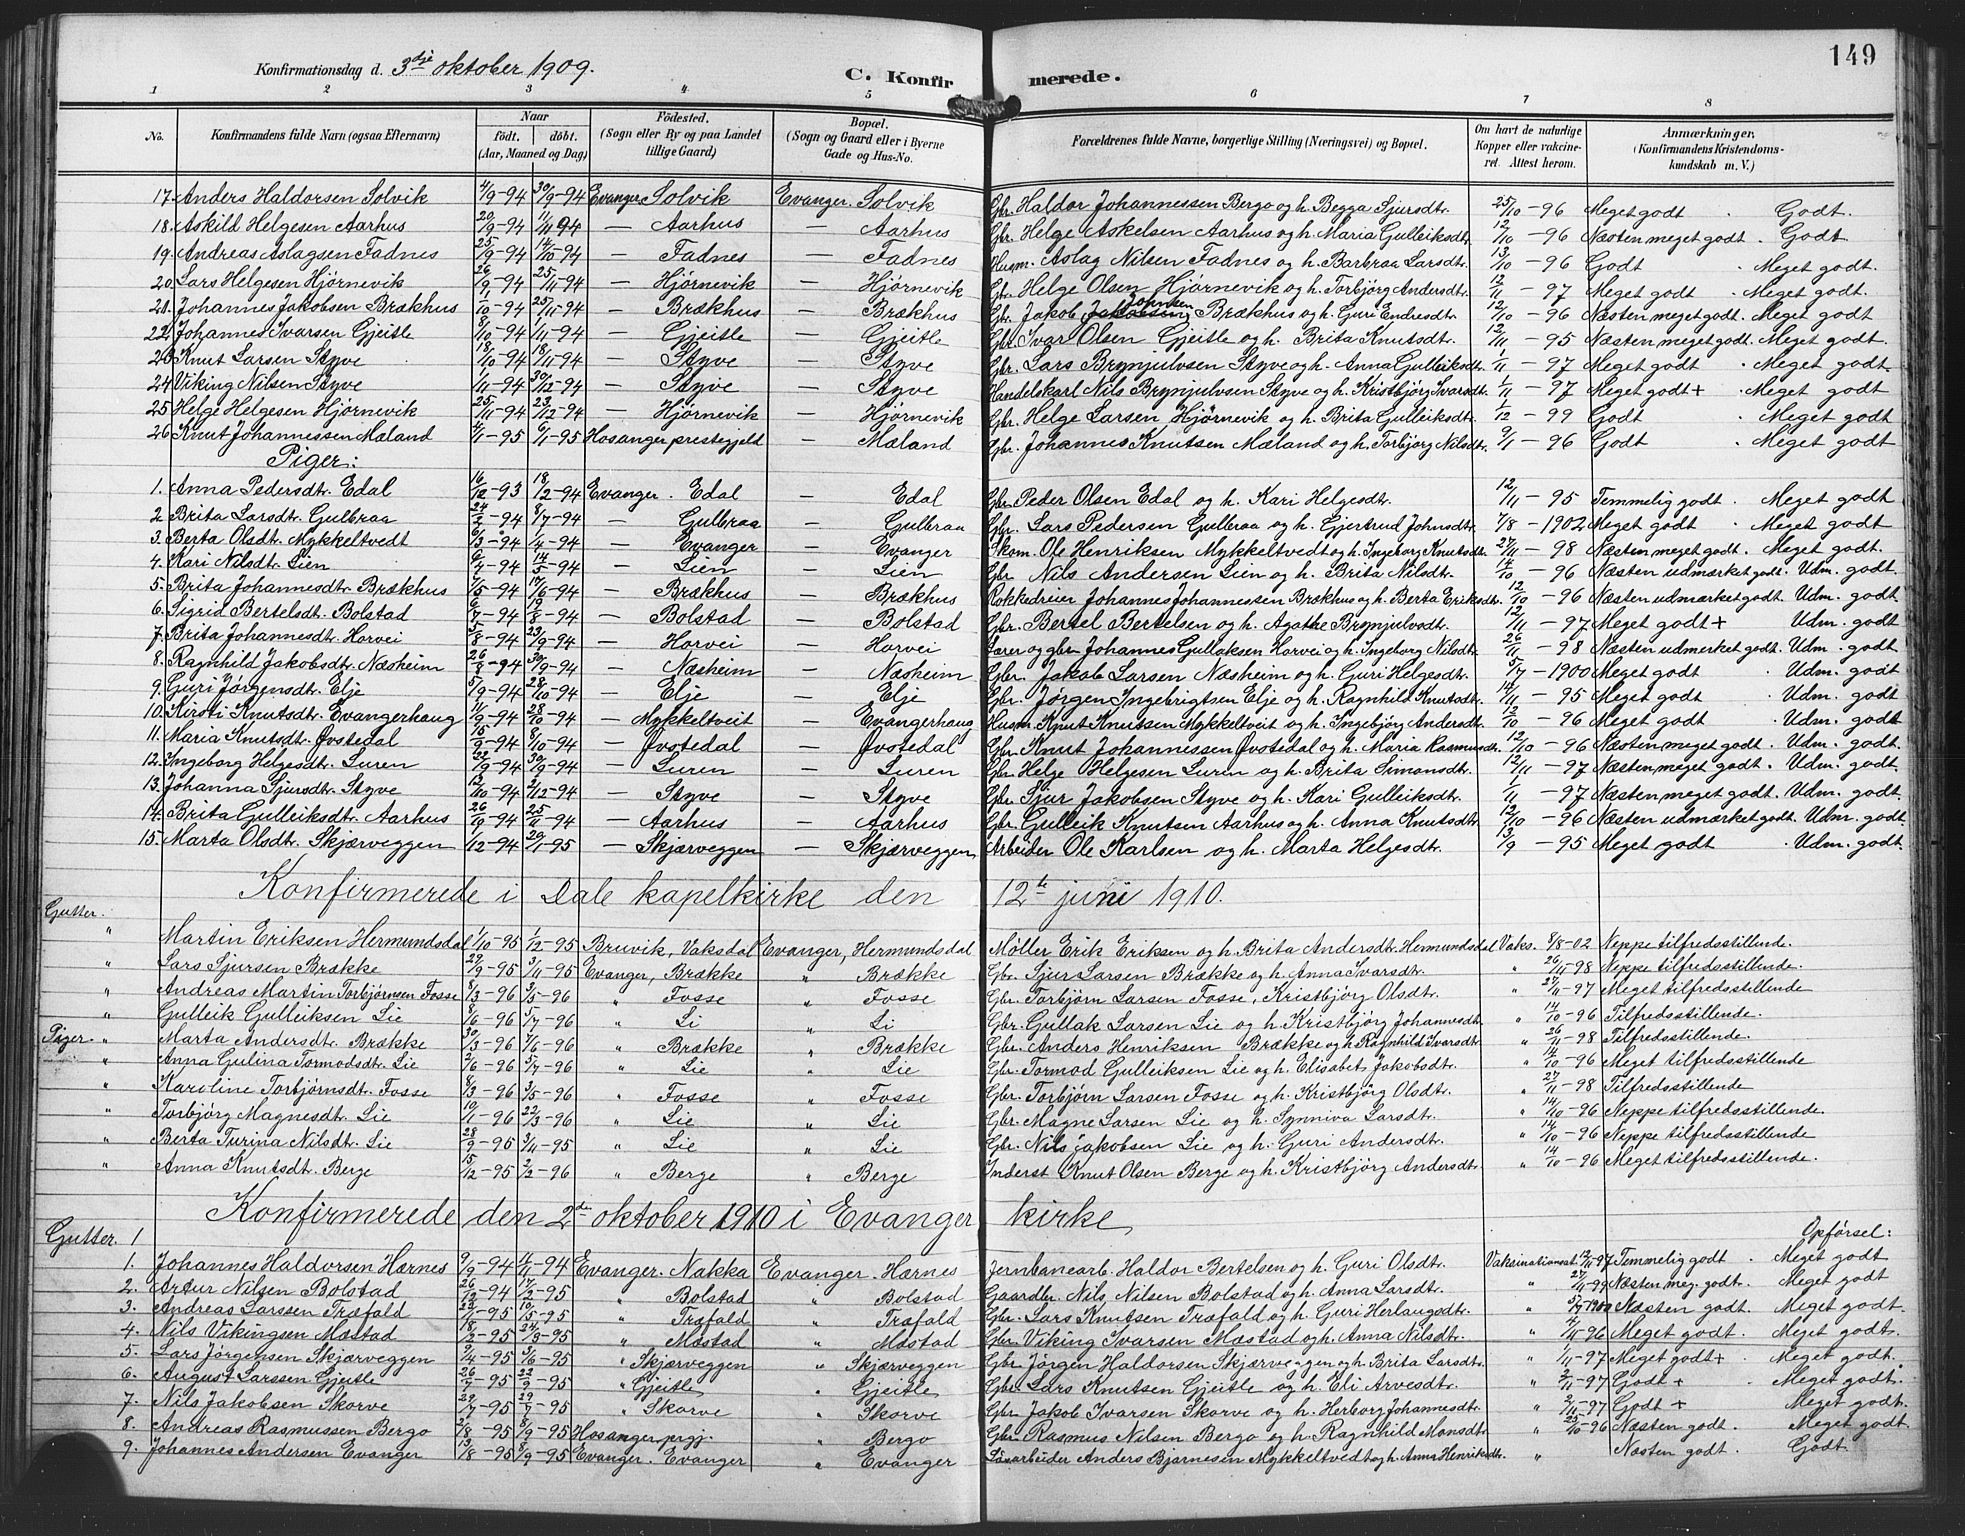 149
Konfirmationsdag d. 3die oktober 1909. C. Konfirmerede.
1 2 3 4 5 6 7 8
No. Konfirmandens fulde Navn (ogsaa Efternavn) Naar født. døbt. (Aar, Maaned og Dag) Fødested. (Sogn eller By og paa Landet tillige Gaard) Bopæl. (Sogn og Gaard eller i Byerne Gade og Hus-No. Forældrenes fulde Navne, borgerlige Stilling (Næringsvei) og Bopæl. Om havt de naturlige Kopper eller vaccineret. Attest herom. Anmærkninger, (Konfirmandens Kristendomskundskab m. V.)
17. Anders Haldorsen Solvik 4/9-94 30/9-94 Evanger Solvik Evanger. Solvik Gbr. Haldor Johannessen Bergo og h. Begga Sjursdt. 25/10-96 Meget godt. Godt.
18. Askild Helgesen Aarhus 20/9-94 11/11 94 — Aarhus — Aarhus Gbr. Helge Askelsen Aarhus og h. Maria Gulleiksdt. 12/10-96 Næsten meget godt. Godt
19. Andreas Aslagsen Fadnes 25/9-94 14/10-94 — Fadnes — Fadnes Husm. Aslag Nilsen Fadnes og h. Barbraa Larsdt. 13/10-96 Godt. Meget godt.
20. Lars Helgesen Hjørnevik 26/9-94 25/11-94 — Hjørnevik — Hjørnevik Gbr. Helge Olsen Hjørnevik og h. Torbjør Andersdt. 12/11-97 Meget godt. Meget godt.
21. Johannes Jakobsen Brækhus 1/10-94 25/11-94 — Brækhus — Brækhus Gbr. Jakob Johnsen Brækhus og h. Guri Endresdt. 12/10-96 Næsten meget godt. Meget godt
22. Johannes Ivarsen Gjeitle 8/10-94 /11-94 — Gjeitle — Gjeitle Gbr. Ivar Olsen Gjeitle og h. Brita Knutsdt. 12/11-95 Næsten meget godt. Meget godt.
23. Knut Larsen Styve 18/10-94 18/11-94 — Styve — Styve Gbr. Lars Brynjulvsen Styve og h. Anna Gulleiksdt. 1/11-97 Meget godt. Meget godt
24. Viking Nilsen Styve 1/11-94 30/12-94 — Styve — Styve Handelskarl Nils Brynjulvsen Styve og h. Kristbjørg Ivarsdt. 1/11-97 Meget godt + Meget godt
25. Helge Helgesen Hjørnevik 25/11-94 23/12-94 — Hjørnevik — Hjørnevik Gbr. Helge Larsen Hjørnevik og h. Brita Gulleiksdt. 1/12-99 Godt. Meget godt
26. Knut Johannessen Mæland /1-95 6/1-95 Hosanger prestegjeld — Mæland Gbr. Johannes Knutsen Mæland og h. Torbjørg Nilsdt. 9/1-96 Godt. Meget godt
Piger:
1. Anna Pedersdt. Edal 16/12-93 18/2-94 Evanger. Edal — Edal Gbr. Peder Olsen Edal og h. Kari Helgesdt. 12/11-95 Temmelig godt. Meget godt
2. Brita Larsdt. Gulbraa 24/2-94 8/7-94 — Gulbraa — Gulbraa Gbr. Lars Pedersen Gulbraa og h. Gjertrud Johnsdt. 7/8-1902 Meget godt. Meget godt.
3. Berta Olsdt. Mykkeltvedt 6/3-94 1/4-94 — Evanger — Evanger Skom. Ole Henriksen Mykkeltvedt og h. Ingeborg Knutsdt. 27/11-98 Næsten meget godt. Meget godt.
4. Kari Nilsdt. Lien 6/4-94 14/5-94 — Lien — Lien Gbr. Nils Andersen Lien og h. Brita Nilsdt. 14/10-96 Næsten udmærket godt. Udm. godt.
5. Brita Johannesdt. Brækhus 7/5-94 17/6-94 — Brækhus — Brækhus Rokkedreier Johannes Johannessen Brækhus og h. Berta Eriksdt. 12/10-96 Næsten udmærket godt. Udm. godt.
6. Sigrid Bertelsdt. Bolstad 6/7-94 19/8-94 — Bolstad — Bolstad Gbr. Bertel Bertelsen og h. Agathe Brynjulvsdt. 12/11-97 Meget godt + Udm. godt
7. Brita Johannesdt. Horvei 5/8-94 23/9-94 — Horvei — Horvei Lærer og gbr. Johannes Gullaksen Horvei og h. Ingeborg Nilsdt. 26/11-98 Næsten udmerket godt. Udm. godt
8. Ragnhild Jakobsdt. Næsheim 26/8-94 30/9-94 — Næsheim — Næsheim Gbr. Jakob Larsen Næsheim og h. Guri Helgesdt. 5/7-1900 Meget godt. Udm. godt
9. Guri Jørgensdt. Elje 5/9-94 28/10-94 — Elje — Elje Gbr. Jørgen Ingebrigtsen Elje og h. Ragnhild Knutsdt. 14/11-95 Meget godt. Udm. godt
10. Kirsti Knutsdt. Evangerhaug 11/9-94 28/10-94 — Mykkeltveit — Evangerhaug Husm. Knut Knutsen Mykkeltveit og h. Ingebjør Andersdt. 12/10-96 Meget godt. Udm. godt
11. Maria Knutsdt. Øvstedal 15/9-94 8/10-94 — Øvstedal — Øvstedal Gbr. Knut Johannessen Øvstedal og h. Maria Rasmusdt. 12/10-96 Næsten meget godt. Udm. godt.
12. Ingeborg Helgesdt. Luren 22/9-94 30/9-94 — Luren — Luren Gbr. Helge Helgesen Luren og h. Brita Simonsdt. 12/11-97 Næsten meget godt. Udm. godt.
13. Johanna Sjursdtr. Styve 12/10-94 2/12-94 — Styve — Styve Gbr. Sjur Jakobsen Styve og h. Kari Gulleiksdt. 1/11-97 Næsten meget godt. Udm. godt.
14. Brita Gulleiksdt. Aarhus 26/10-94 25/11-94 — Aarhus — Aarhus Gbr. Gulleik Knutsen Aarhus og h. Anna Knutsdt. 12/10-96 Næsten udmærket godt. Udm. godt.
15. Marta Olsdt. Skjærveggen 1/12-94 20/1-95 — Skjærveggen — Skjærveggen Arbeider Ole Karlsen og h. Marta Helgesdt. 13/9-95 Meget godt. Udm. godt
Konfirmerede i Dale kapelkirke den 12te juni 1910.
Gutter.
" Martin Eriksen Hermundsdal 1/10-95 1/12-95 Bruvik, Vaksdal Evanger, Hermundsdal Møller Erik Eriksen og h. Brita Andersdt. Hermundsdal Vaks. 8/8-02 Neppe tilfredsstillende.
" Lars Sjursen Brække 29/9-95 3/11-95 Evanger, Brække " Brække Gbr. Sjur Larsen Brække og h. Anna Ivarsdt. " 26/11-98 Neppe tilfredsstillende.
" Andreas Martin Torbjørnsen Fosse 8/3-96 3/5-96 " Fosse " Fosse Gbr. Torbjørn Larsen Fosse, Kristbjørg Olsdt. " 27/11-97 Meget tilfredsstillende
" Gulleik Gulleiksen Lie 8/6-96 5/7-96 " Li " Li Gbr. Gullak Larsen Lie og h. Kristbjør Johannesdt. " 14/10-96 Tilfredsstillende.
Piger. " Marta Andersdt. Brække 30/3-96 7/6-96 " Brække " Brække Gbr. Anders Henriksen Brække og h. Ragnhild Ivarsdt. " 26/11-98 Tilfredsstillende.
" Anna Gulina Tormodsdt. Lie 2/6-96 5/7-96 " Lie " Lie Gbr. Tormod Gulleiksen Lie og h. Elisabet Jakobsdt. " 14/10-96 Meget tilfredsstillende
" Karoline Torbjørnsdt. Fosse 8/3-96 3/5-96 " Fosse " Fosse Gbr. Torbjørn Larsen Fosse og h. Kristbjørg Olsdt. " 27/11-98 Tilfredsstillende
" Torbjørg Magnesdt. Lie 10/1-96 22/3-96 " Lie " Lie Gbr. Magne Larsen Lie og h. Synniva Larsdt. " 14/10-96 Neppe tilfredsstillende.
" Berta Turina Nilsdt. Lie 28/9-95 3/11-95 " Lie " Lie Gbr. Nils Jakobsen Lie og h. Guri Andersdt. " 14/10-96 Neppe tilfredsstillende
" Anna Knutsdt. Berge 15/12-95 2/2-96 " Berge " Berge Inderst Knut Olsen Berge og h. Kristbjørg Andersdt. " 14/10-96 Meget tilfredsstillende.
Konfirmerede den 2den oktober 1910 i Evanger kirke
Gutter. 1 Opførsel:
1. Johannes Haldorsen Hærnes 9/9-94 11/11-94 Evanger. Nakka Evanger. Hærnes Jernbanearb. Haldor Bertelsen og h. Guri Olsdt. Vaksinationsat. 12/11-97 Temmelig godt. Meget godt
2. Artur Nilsen Bolstad 26/12-94 17/2-95 " Bolstad " Bolstad Gaardbr. Nils Nilsen Bolstad og h. Anna Larsdt. " 27/11-99 Næsten meg. godt. Meget godt
3. Andreas Larssen Træfald 23/1-95 10/5-95 " Træfald " Træfald Gbr. Lars Knutsen Træfald og h. Guri Herlaugsdt. " 5/7-1900 Næsten godt. Meget godt.
4. Nils Vikingsen Mæstad 18/2-95 24/3-95 " Mæstad " Mæstad Gbr. Viking Ivarsen Mæstad og h. Anna Nilsdt. " /11-96 Meget godt. Meget godt.
5. Lars Jørgensen Skjærveggen 9/4-95 3/6-95 " Skjærveggen " Skjærveggen Gbr. Jørgen Haldorsen Skjærveggen og h. Brita Larsdt. " 1/11-97 Meget godt + Meget godt.
6. August Larssen Gjeitle 26/7-95 22/9-95 " Gjeitle " Gjeitle Gbr. Lars Knutsen Gjeitle og h. Eli Arvesdt. " 2/11-97 Godt + Meget godt.
7. Nils Jakobsen Skorve 29/7-95 29/7-95 " Skorve " Skorve Gbr. Jakob Ivarsen Skorve og h. Herborg Johannesdt. " 2/11-97 Godt + Meget godt
8. Andreas Rasmussen Bergo 2/8-95 8/9-95 Hosanger prgj. " Bergo Gbr. Rasmus Nilsen Bergo og h. Ragnhild Monsdt. " 25/10-96 Næsten godt. Meget godt
9. Johannes Andersen Evanger 13/8-95 8/9-95 Evanger. Evanger " Evanger Løsarbeider Anders Bjarnesen Mykkeltvedt og h. Anna Henriksdtr. " Næsten godt. Godt.